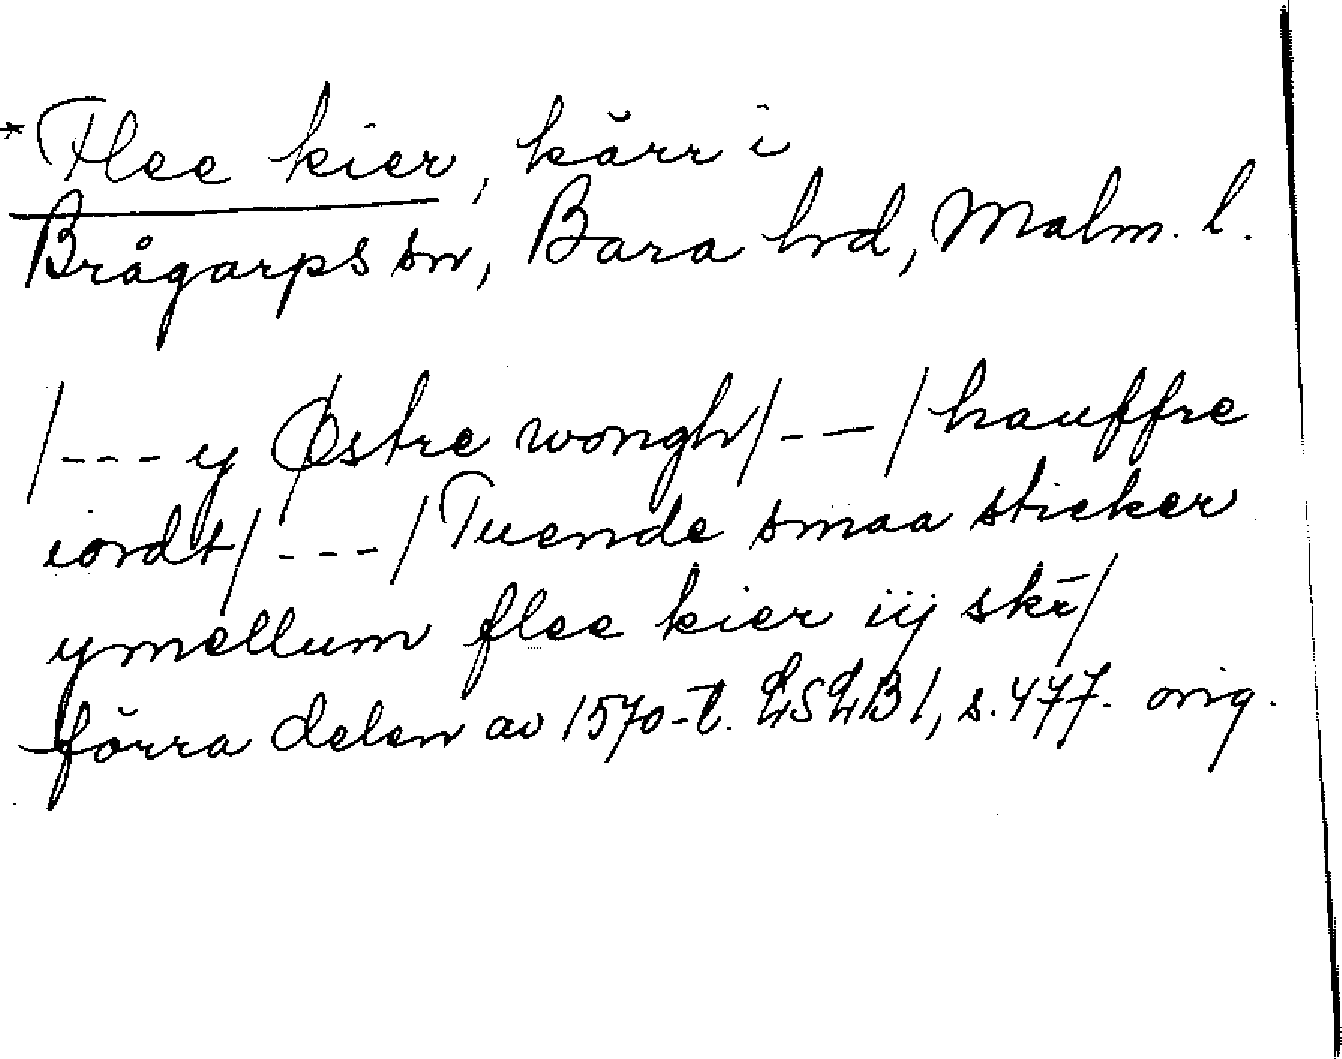 *Flee kier, kärr i
Brågarps sn, Bara hrd, Malm. l.
/---y Østre wongh/---/hauffre
iordt/---/Tuende smaa sticker
ymellum flee kier iij skr̄/
förra delen av 1570-t. LSLB I, s. 477. orig.